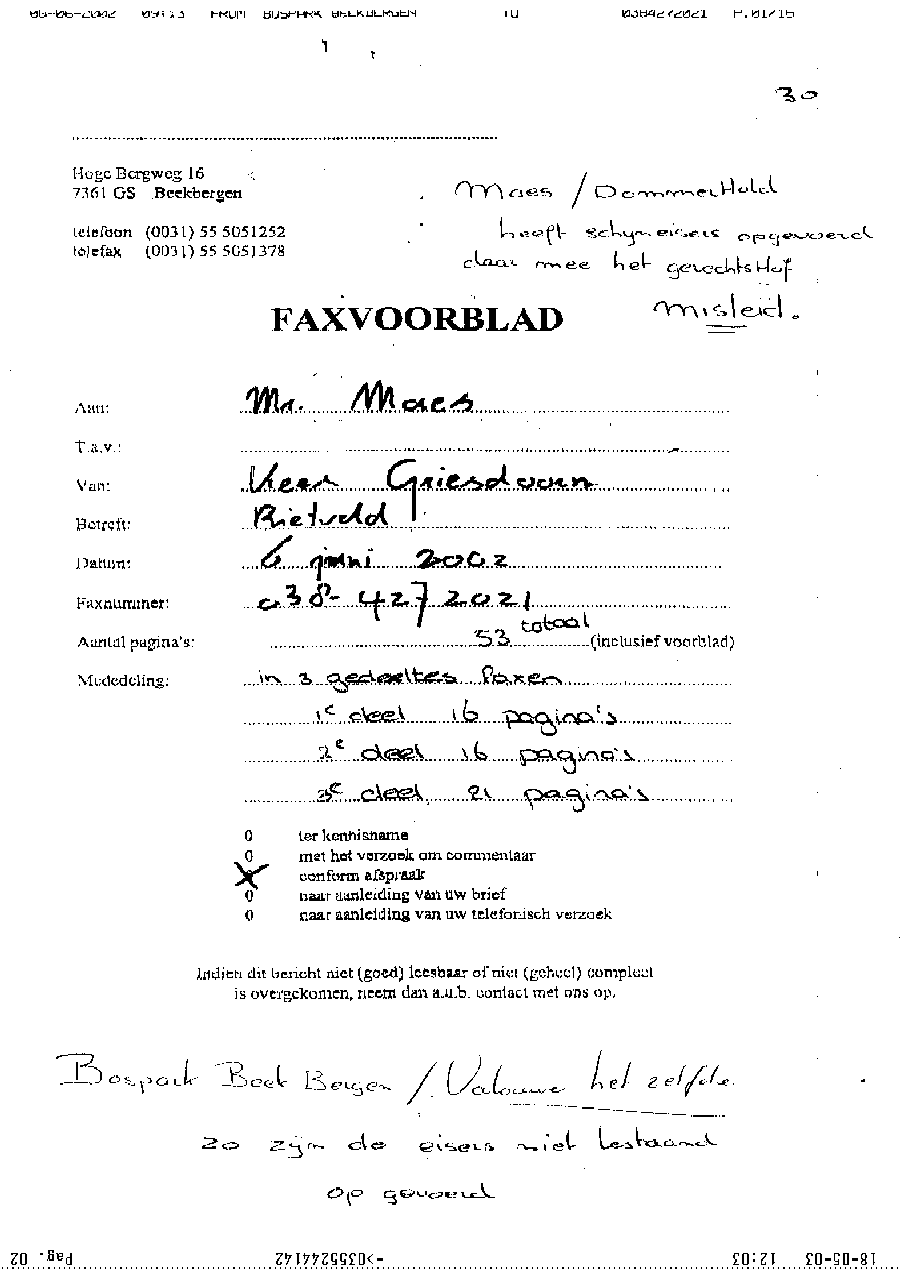 06-06-2002 09:13 FROM BOSPARK BEEKBERGEN TO 0384272021 P.01/16
30
Hoge Bergweg 16
7361 GS Beekbergen
telefoon (0031) 55 5051252
telefax (0031) 55 5051378
Maes / Dommerhold
heeft schijneisers opgevoerd
daar mee het gerechtsHof
misleid.
FAXVOORBLAD
Aan: Mr. Maes
T.a.v.:
Van: Kees Griesdoorn
Betreft: Rietveld
Datum: 6 juni 2002
Faxnummer: 038-4272021
Aantal pagina's: 53 totaal (inclusief voorblad)
Mededeling: in 3 gedeeltes faxen
1e deel 16 pagina's
2e deel 16 pagina's
3e deel, 21 pagina's
0 ter kennisname
0 met het verzoek om commentaar
0 conform afspraak
0 naar aanleiding van uw brief
0 naar aanleiding van uw telefonisch verzoek
Indien dit bericht niet (goed) leesbaar of niet (geheel) compleet
is overgekomen, neem dan a.u.b. contact met ons op.
Bospark Beek Bergen / Valouwe het zelfde.
zo zijn de eisers niet bestaand
op gevoerd
18-05-03 12:03 ->0355244142 Pag. 02